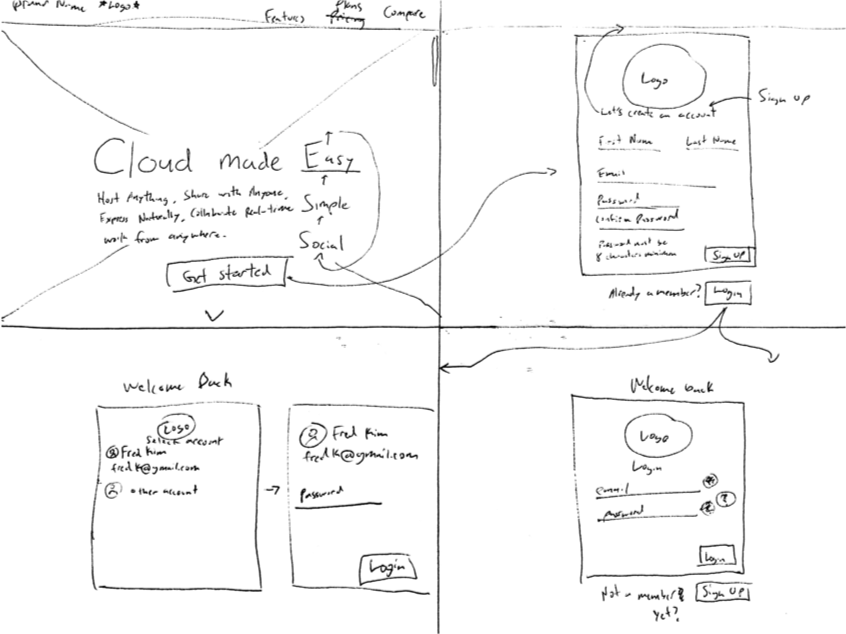 Brand Name *Logo*
Features
Plans
Pricing
Compare
Cloud made Easy
Host Anything, Share with Anyone,
Express Naturally, Collaborate Real-time
work from anywhere.
Simple
Social
Get started
Logo
Let's create an account
Sign UP
First Name
Last Name
Email
Password
Confirm Password
Password must be
8 characters minimum
Sign UP
Already a member?
Login
Welcome Back
Logo
Select account
Fred Kim
fredk@gmail.com
other account
Fred Kim
fredk@gmail.com
Password
Login
Welcome back
Logo
Login
email
Password
?
Login
Not a member
yet?
Sign UP